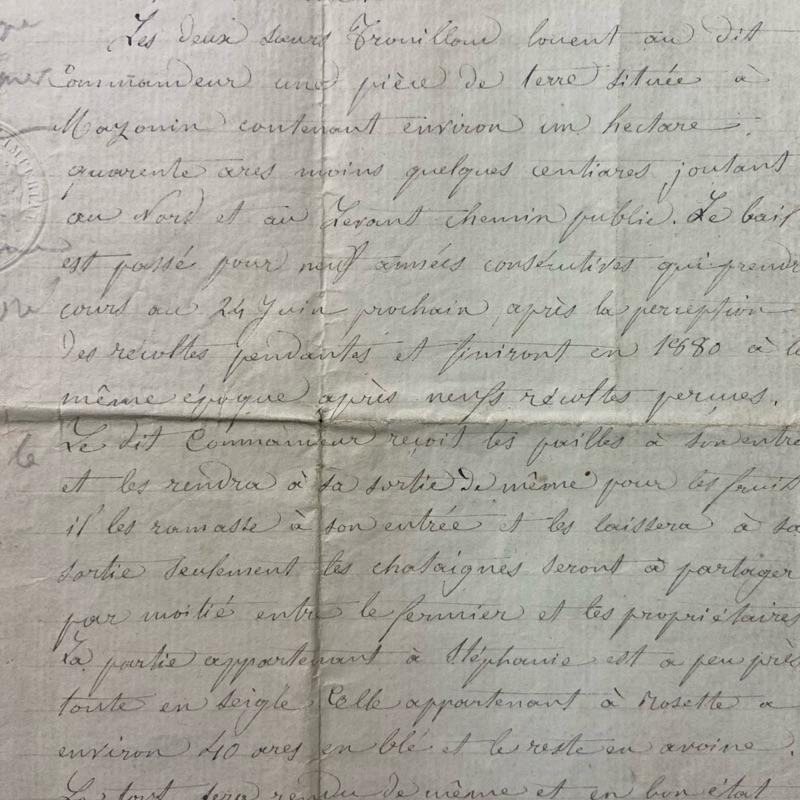 Les deux sœurs Trouilloud louent au dit
Commandeur une pièce de terre située à
Mazonin contenant environ un hectare
quarente ares moins quelques centiares joutant
au Nord et au Levant chemin public. Le bail
est passé pour neuf années consécutives qui prendr
cours au 24 Juin prochain après la perception
des récoltes pendantes et finiront en 1880 à la
même époque après neufs récoltes percues.
Le dit Commandeur reçoit les pailles à son entré
et les rendra à sa sortie de même pour les fruits
il les ramasse à son entrée et les laissera à sa
sortie seulement les chataignes seront à partager
par moitié entre le fermier et les propriétaires
La partie appartenant à Stéphanie est a peu près
toute en seigle Celle appartenant à Rosette a
environ 40 ares en blé et le reste en avoine.
Le tout sera rendu de même et en bon état